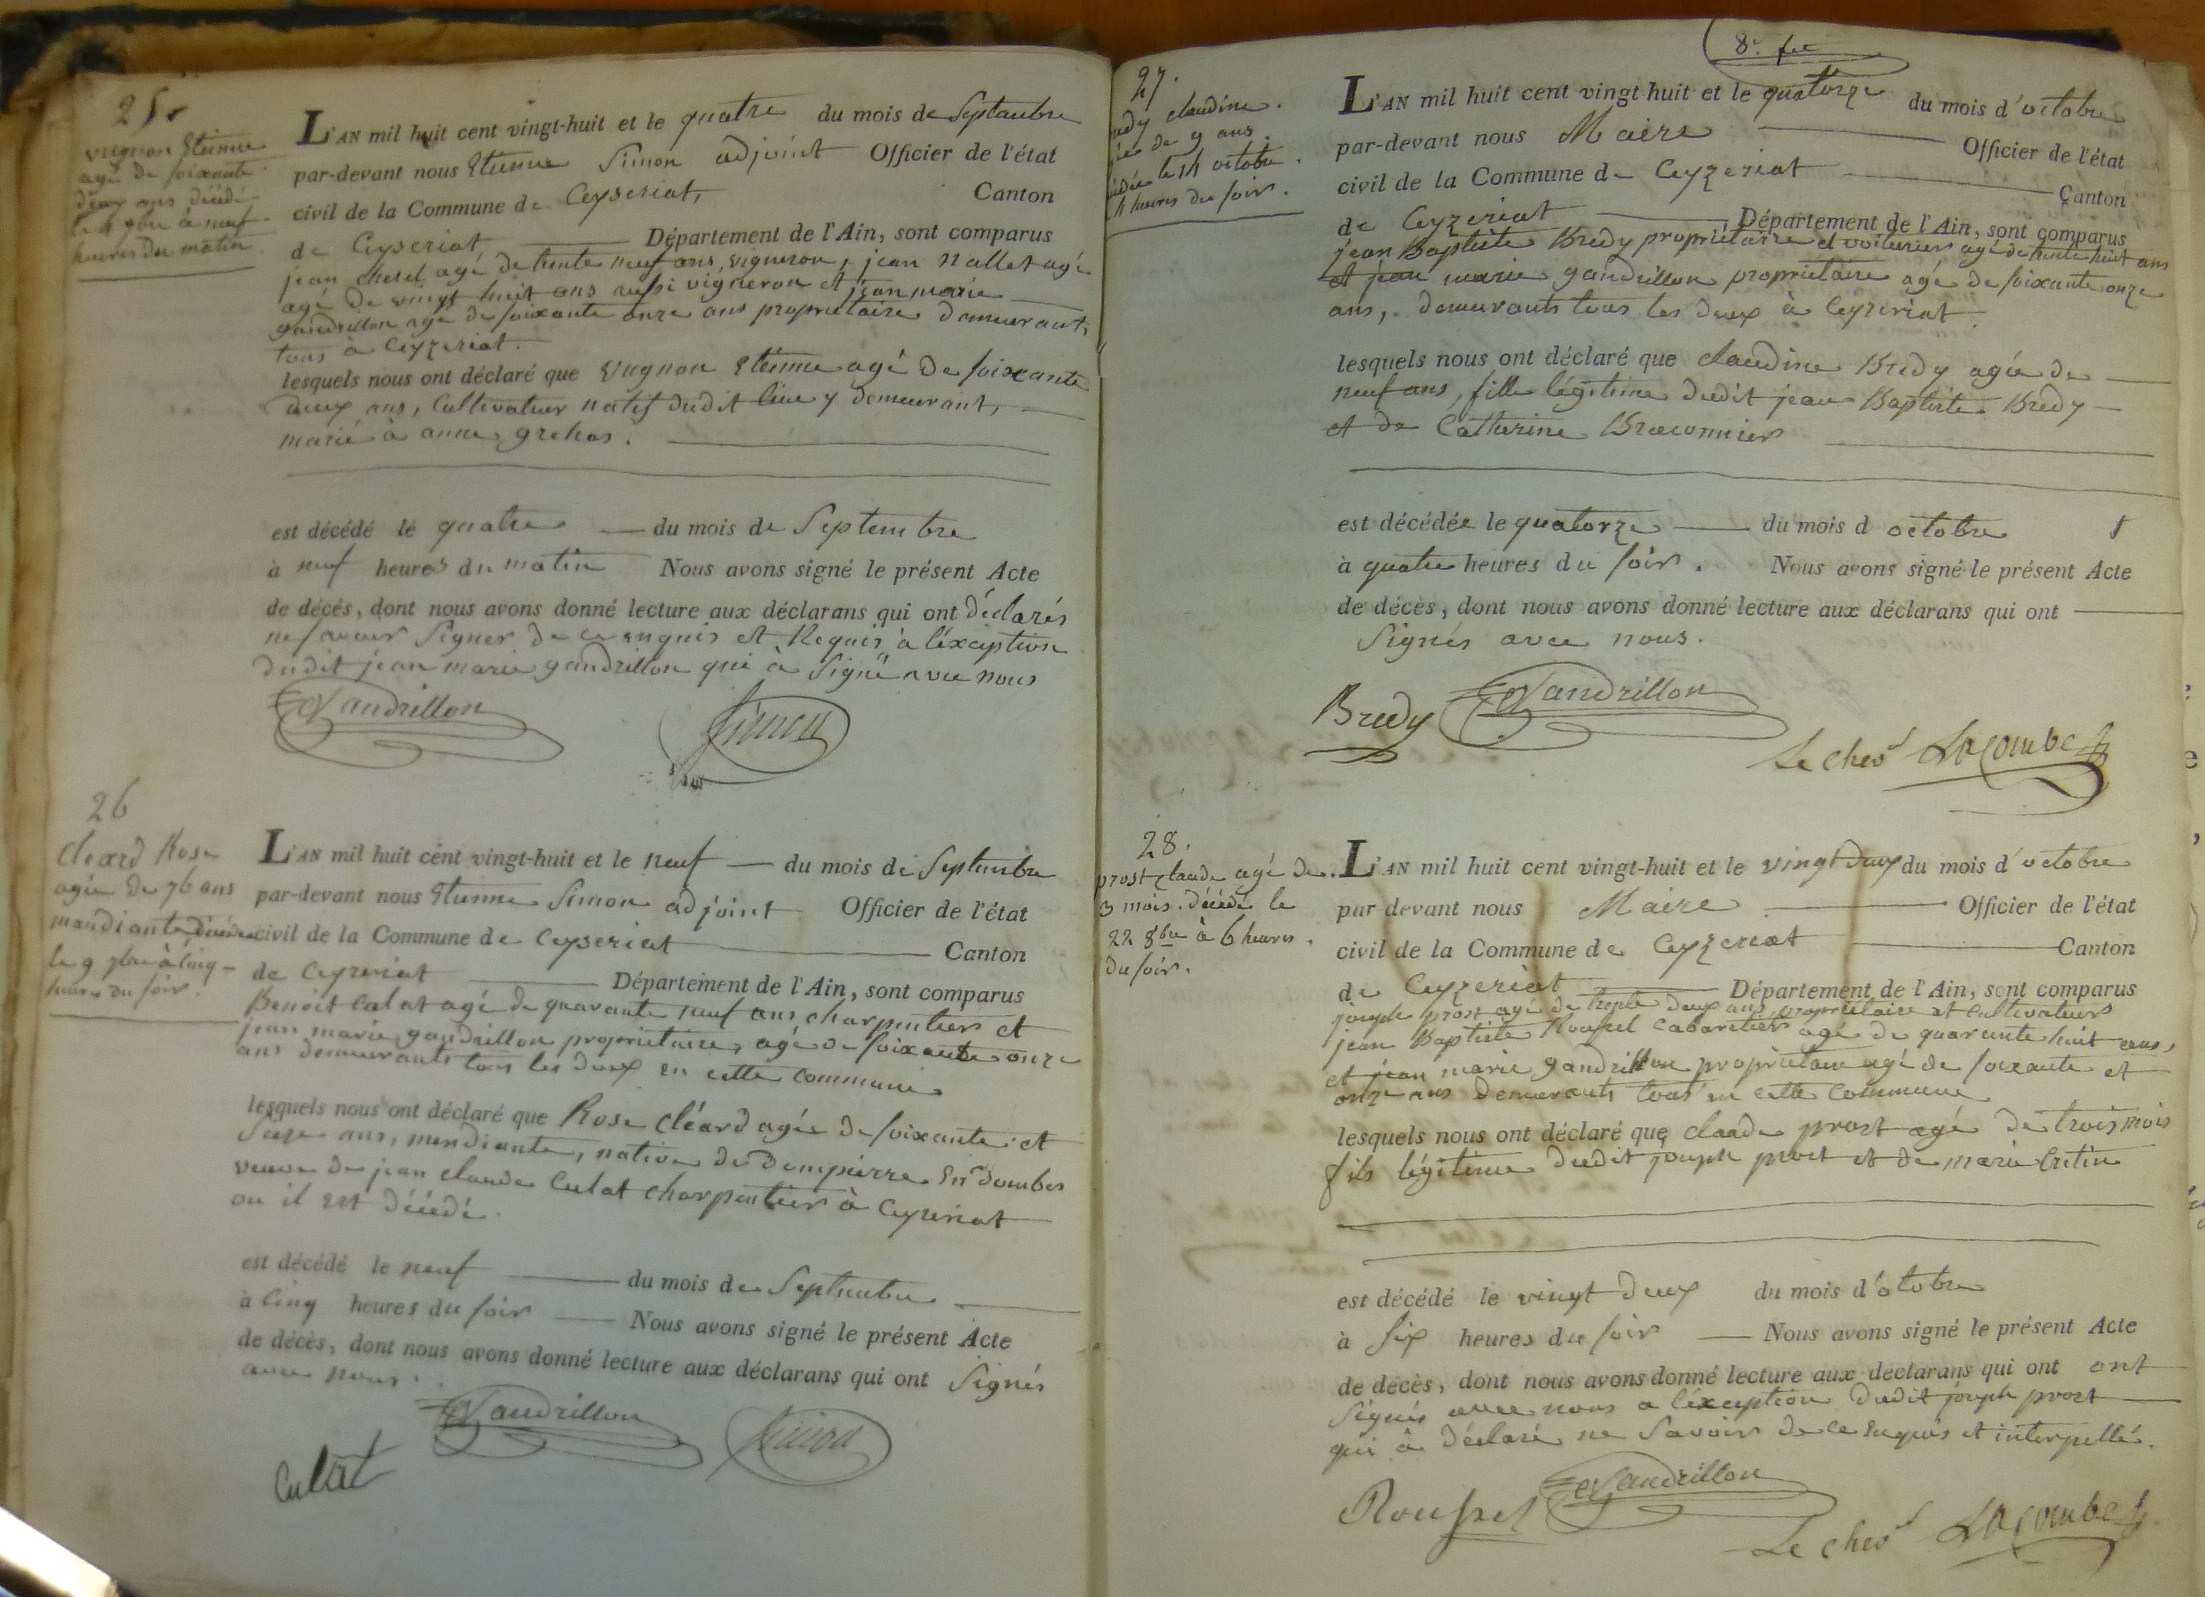 25.
vugnon Etienne
agé de soixante
deux ans décédé
le 4 7bre à neuf
heures du matin
L'AN mil huit cent vingt-huit et le quatre du mois de Septembre
par-devant nous Etienne Simon adjoint Officier de l'état
civil de la Commune de Ceyseriat, Canton
de Ceyseriat Département de l'Ain, sont comparus
jean chevel agé de trente neuf ans, vigneron, jean nallet agé
agé de vingt huit ans aussi vigneron et jean marie
gandrillon agé de soixante onze ans propriétaire demeurant,
tous à Ceyzeriat.
lesquels nous ont déclaré que vugnon Etienne agé de soixante
deux ans, Cultivateur natif dudit lieu y demeurant,
marié à anne grehas.
est décédé le quatre du mois de Septembre
à neuf heures du matin Nous avons signé le présent Acte
de décés, dont nous avons donné lecture aux déclarans qui ont déclarés
ne savoir Signer de ce enquis et Requis à l'éxception
dudit jean marie gandrillon qui à Signé avec nous
Gandrillon Simon
26
Cleard Rose
agée de 76 ans
mandiante décédée
le 9 7bre à cinq
heures du soir.
L'AN mil huit cent vingt-huit et le neuf du mois de Septembre
par-devant nous Etienne Simon adjoint Officier de l'état
civil de la Commune de Ceyseriat Canton
de Ceyzeriat Département de l'Ain, sont comparus
Benoit Culat agé de quarante neuf ans charpentier et
jean marie gandrillon propriétaire, agé de soixante onze
ans demeurants tous les deux en cette commune
lesquels nous ont déclaré que Rose cléard agée de soixante et
Seize ans, mendiante, native de Dompierre En Dombes
veuve de jean claude Culat charpentier à Ceyzeriat
ou il est décédé.
est décédé le neuf du mois de Septembre
à Cinq heures du soir Nous avons signé le présent Acte
de décès, dont nous avons donné lecture aux déclarans qui ont Signés
avec nous.
Gandrillon Simon
Culat
8e. fet
27.
claudine.
de 9 ans
le 14 octobre.
4 heures du soir.
L'AN mil huit cent vingt huit et le quatorze du mois d'octobre
par-devant nous Maire Officier de l'état
civil de la Commune de Ceyzeriat Canton
de Ceyzeriat Département de l'Ain, sont comparus
jean Baptiste Bredy propriétaire et voiturier agé de trente huit ans
et jean marie gandrillon propriétaire agé de soixante onze
ans, demeurants tous les deux à Ceyzeriat.
lesquels nous ont déclaré que claudine Bredy agée de
neuf ans, fille légitime dudit jean Baptiste Bredy
et de Catherine Braconnier
est décédée le quatorze du mois d octobre
à quatre heures du soir. Nous avons signé le présent Acte
de décès, dont nous avons donné lecture aux déclarans qui ont
Signés avec nous.
Bredy Gandrillon
Le chevr Lacombe
28.
prost claude agé de
3 mois. décédé le
22 8bre à 6 heures.
du soir.
L'AN mil huit cent vingt-huit et le vingt deux du mois d'octobre
par devant nous Maire Officier de l'état
civil de la Commune de Ceyzeriat Canton
de Ceyzeriat Département de l'Ain, sont comparus
joseph prost agé de trente deux ans, propriétaire et cultivateur
jean Baptiste Roussel Cabaretier agé de quarente huit ans,
et jean marie gandrillon propriétaire agé de soixante et
onze ans demeurants tous en cette Commune
lesquels nous ont déclaré que claude prost agé de trois mois
fils légitime dudit joseph prost et de marie Cretin
est décédé le vingt deux du mois d'octobre
à Six heures du soir Nous avons signé le présent Acte
de décès, dont nous avons donné lecture aux déclarans qui ont ont
Signés avec nous a l'éxception dudit joseph prost
qui à déclaré ne Savoir de ce enquis et interpellé.
Roussel Gandrillon
Le chevr Lacombe